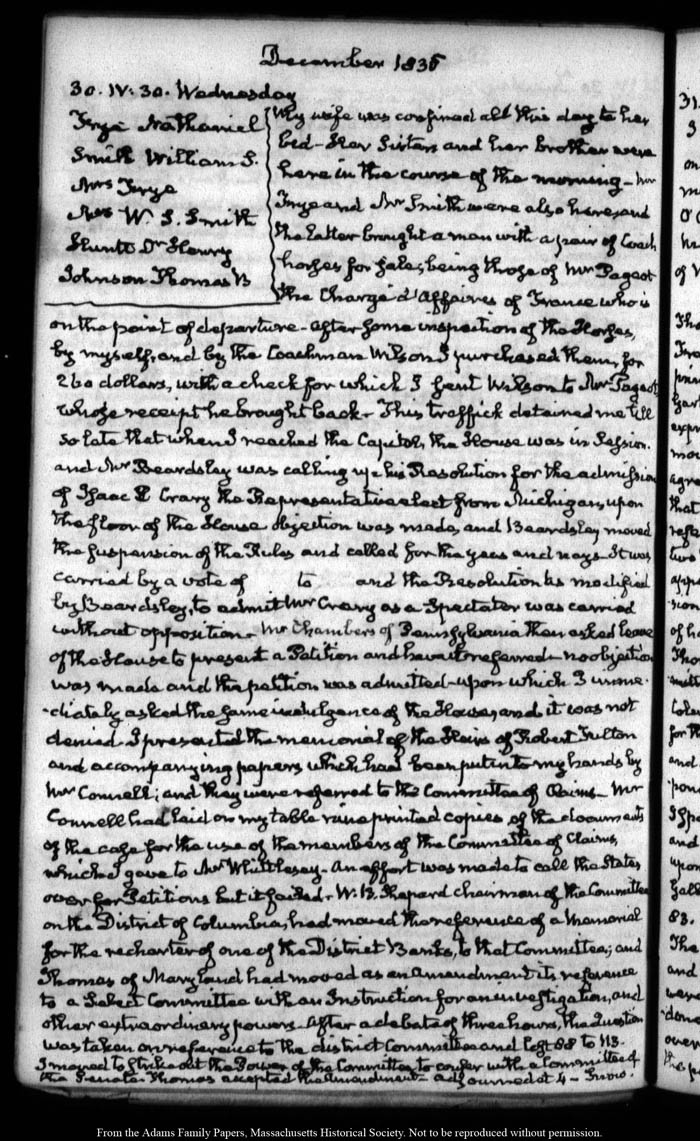 December 1835
30. IV: 30. Wednesday
Frye Nathaniel
Smith William S.
Mrs Frye
Mrs W. S. Smith
Huntt Dr Henry
Johnson Thomas B
My wife was confined all this day to her
bed - Her Sisters and her brother were
here in the course of the morning - Mr
Frye and Mr Smith were also here, and
the latter brought a man with a pair of Coach
horses for sale, being those of Mr Pageot
the Chargé d'Affaires of France who is
on the point of departure - After some inspection of the Horses,
by myself, and by the Coachman Wilson I purchased them, for
260 dollars, with a check for which I sent Wilson to Mr Pageot
whose receipt he brought back - This traffick detained me till
so late that when I reached the Capitol, the House was in Session.
and Mr Beardsley was calling up his Resolution for the admission
of Isaac E Crary the Representative elect from Michigan, upon
the floor of the House objection was made, and Beardsley moved
the suspension of the Rules and called for the yeas and nays - It was
carried by a vote of to and the Resolution as modified
by Beardsley, to admit Mr Crary as a Spectator was carried
without opposition - Mr Chambers of Pennsylvania then asked leave
of the House to present a Petition and have it referred - no objection
was made and the petition was admitted - upon which I imme-
-diately asked the same indulgence of the House, and it was not
denied. I presented the memorial of the Heirs of Robert Fulton
and accompanying papers which had been put into my hands by
Mr Connell; and they were referred to the Committee of Claims - Mr
Connell had laid on my table nine printed copies of the documents
of the case for the use of the members of the Committee of Claims,
which I gave to Mr Whittlesey - An effort was made to call the States
over for Petitions but it failed - W. B. Shepard chairman of the Committee
on the District of Columbia, had moved the reference of a Memorial
for the recharter of one of the District Banks, to that Committee; and
Thomas of Maryland had moved as an amendment its reference
to a Select Committee with an Instruction for an investigation, and
other extraordinary powers - After a debate of three hours, the Question
was taken on reference to the district Committee and lost 88 to 113.
I moved to strike out the Power of the Committee to confer with a Committee of
the Senate. Thomas accepted the amendment - adjourned at 4 - Snow.
From the Adams Family Papers, Massachusetts Historical Society. Not to be reproduced without permission.